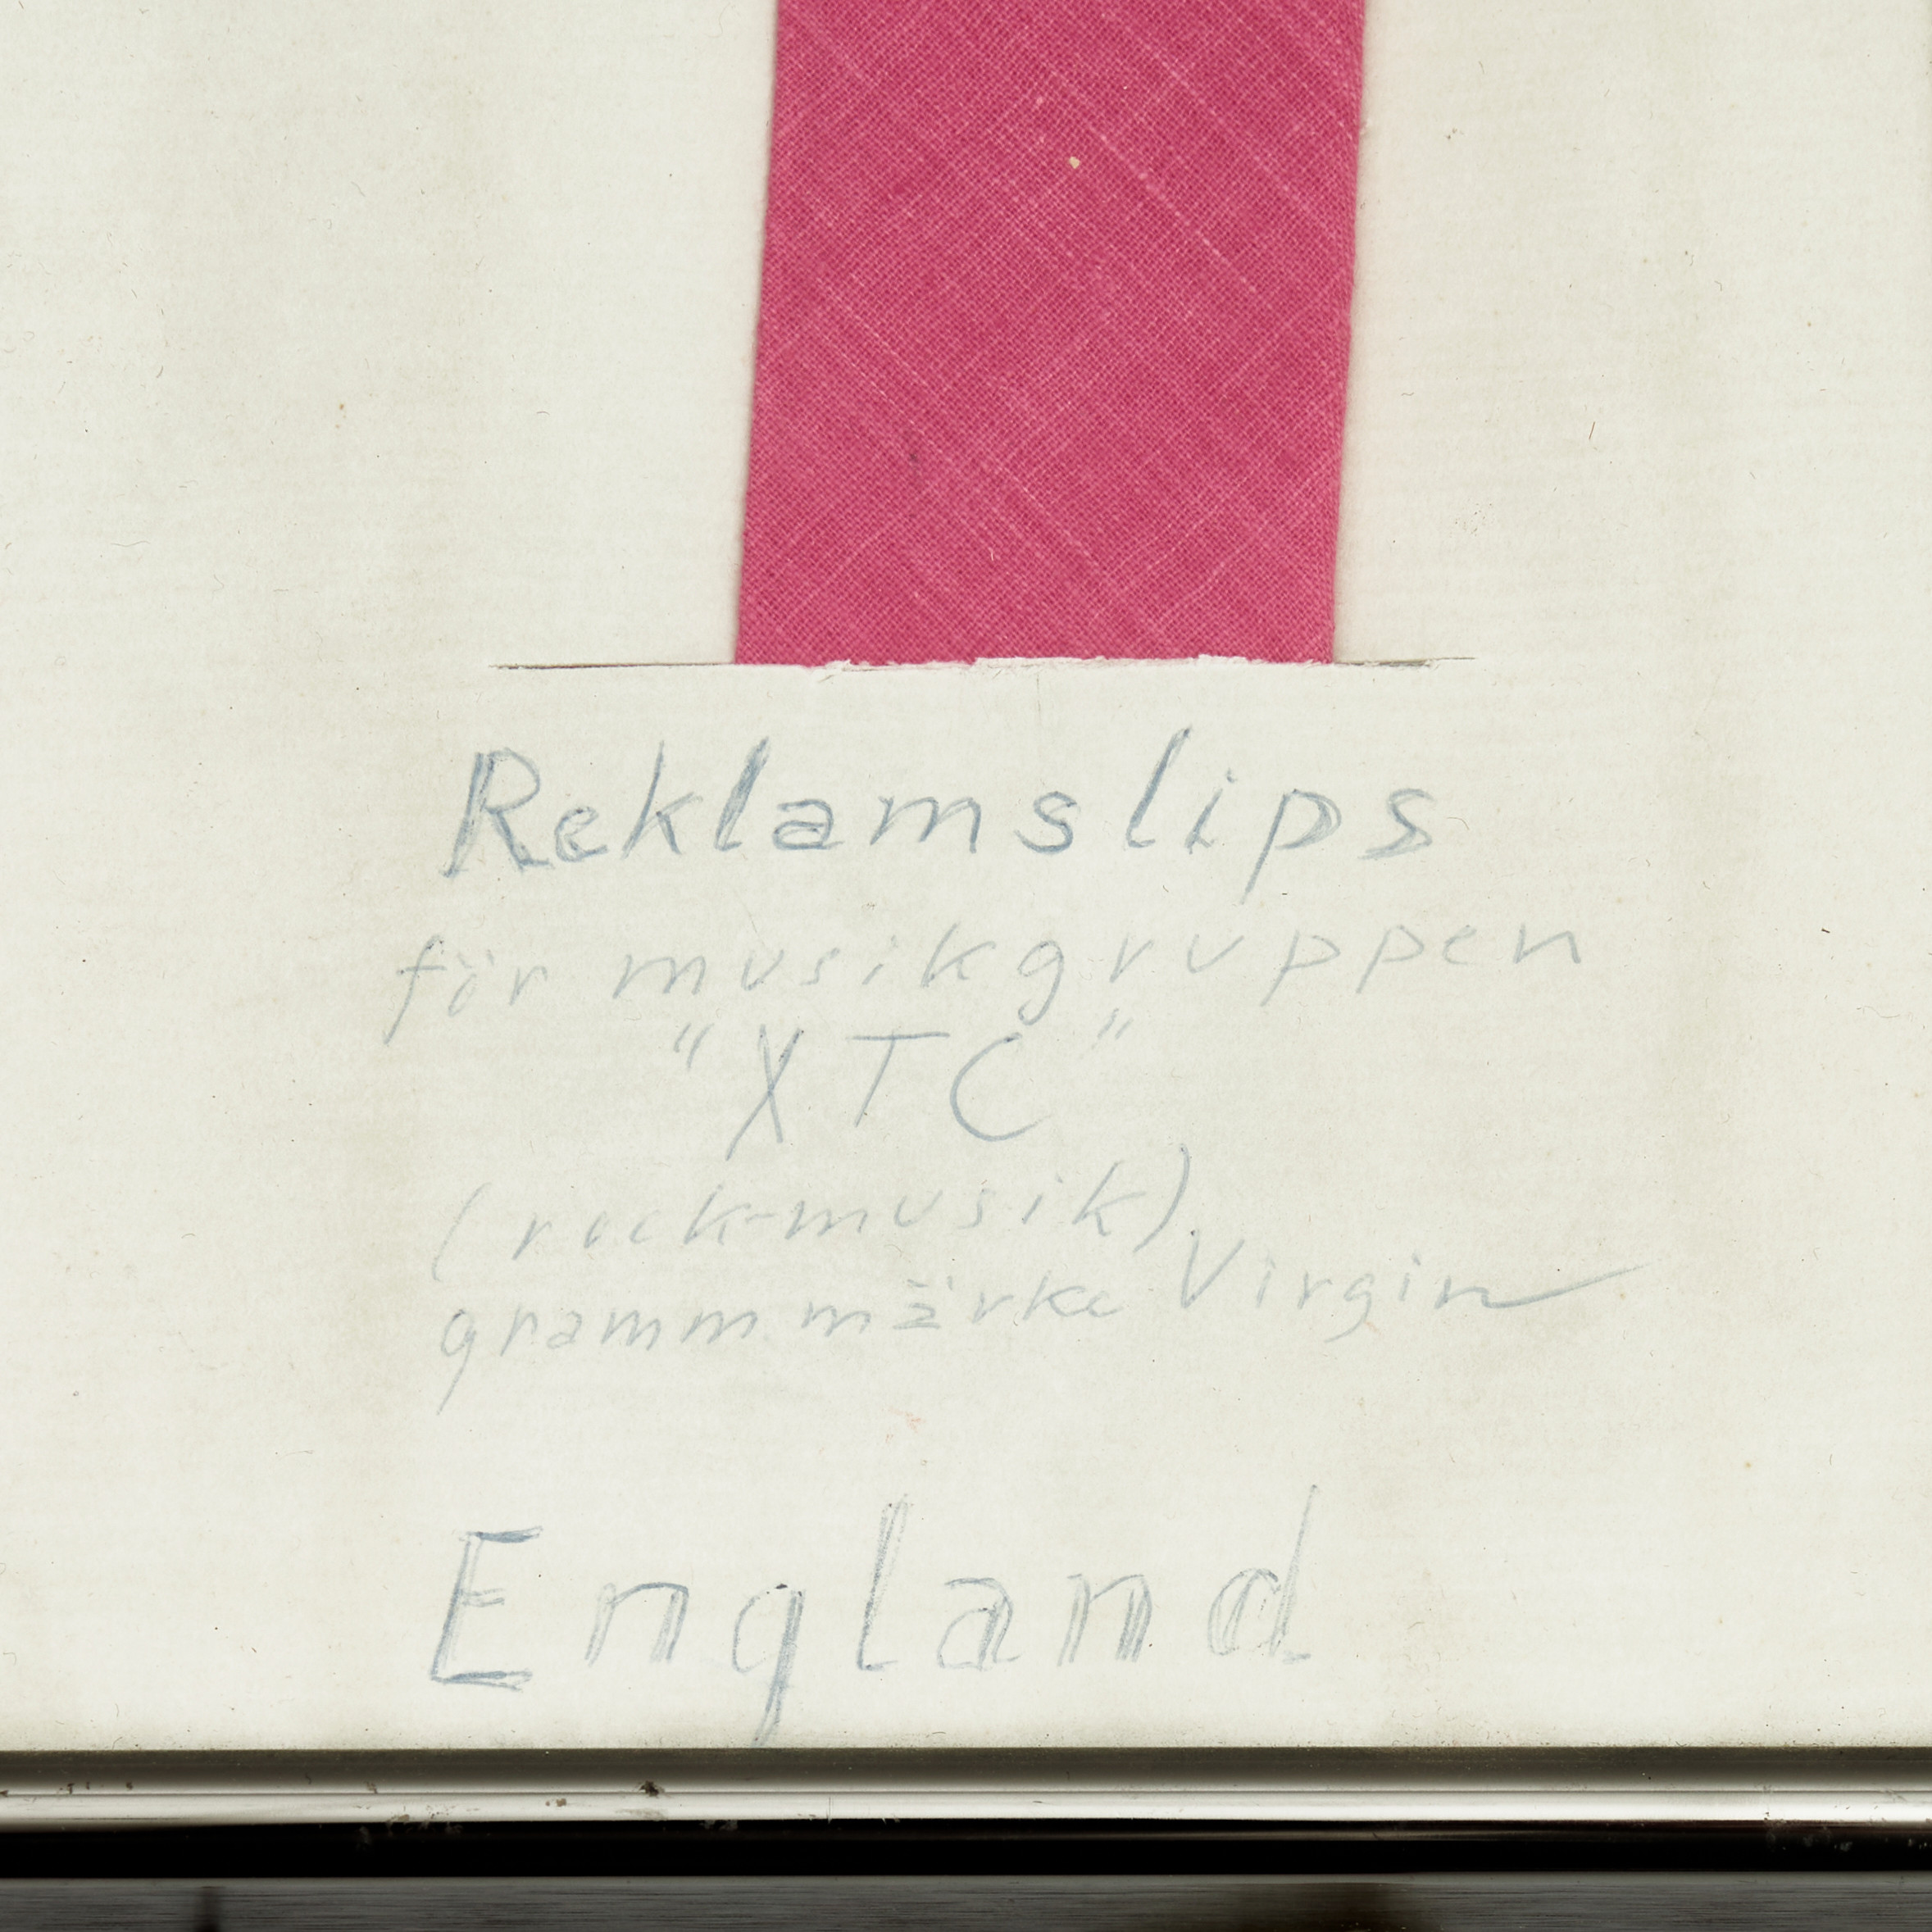 Reklamslips
för musikgruppen
"XTC"
(rock-musik)
grammmärke Virgin
England